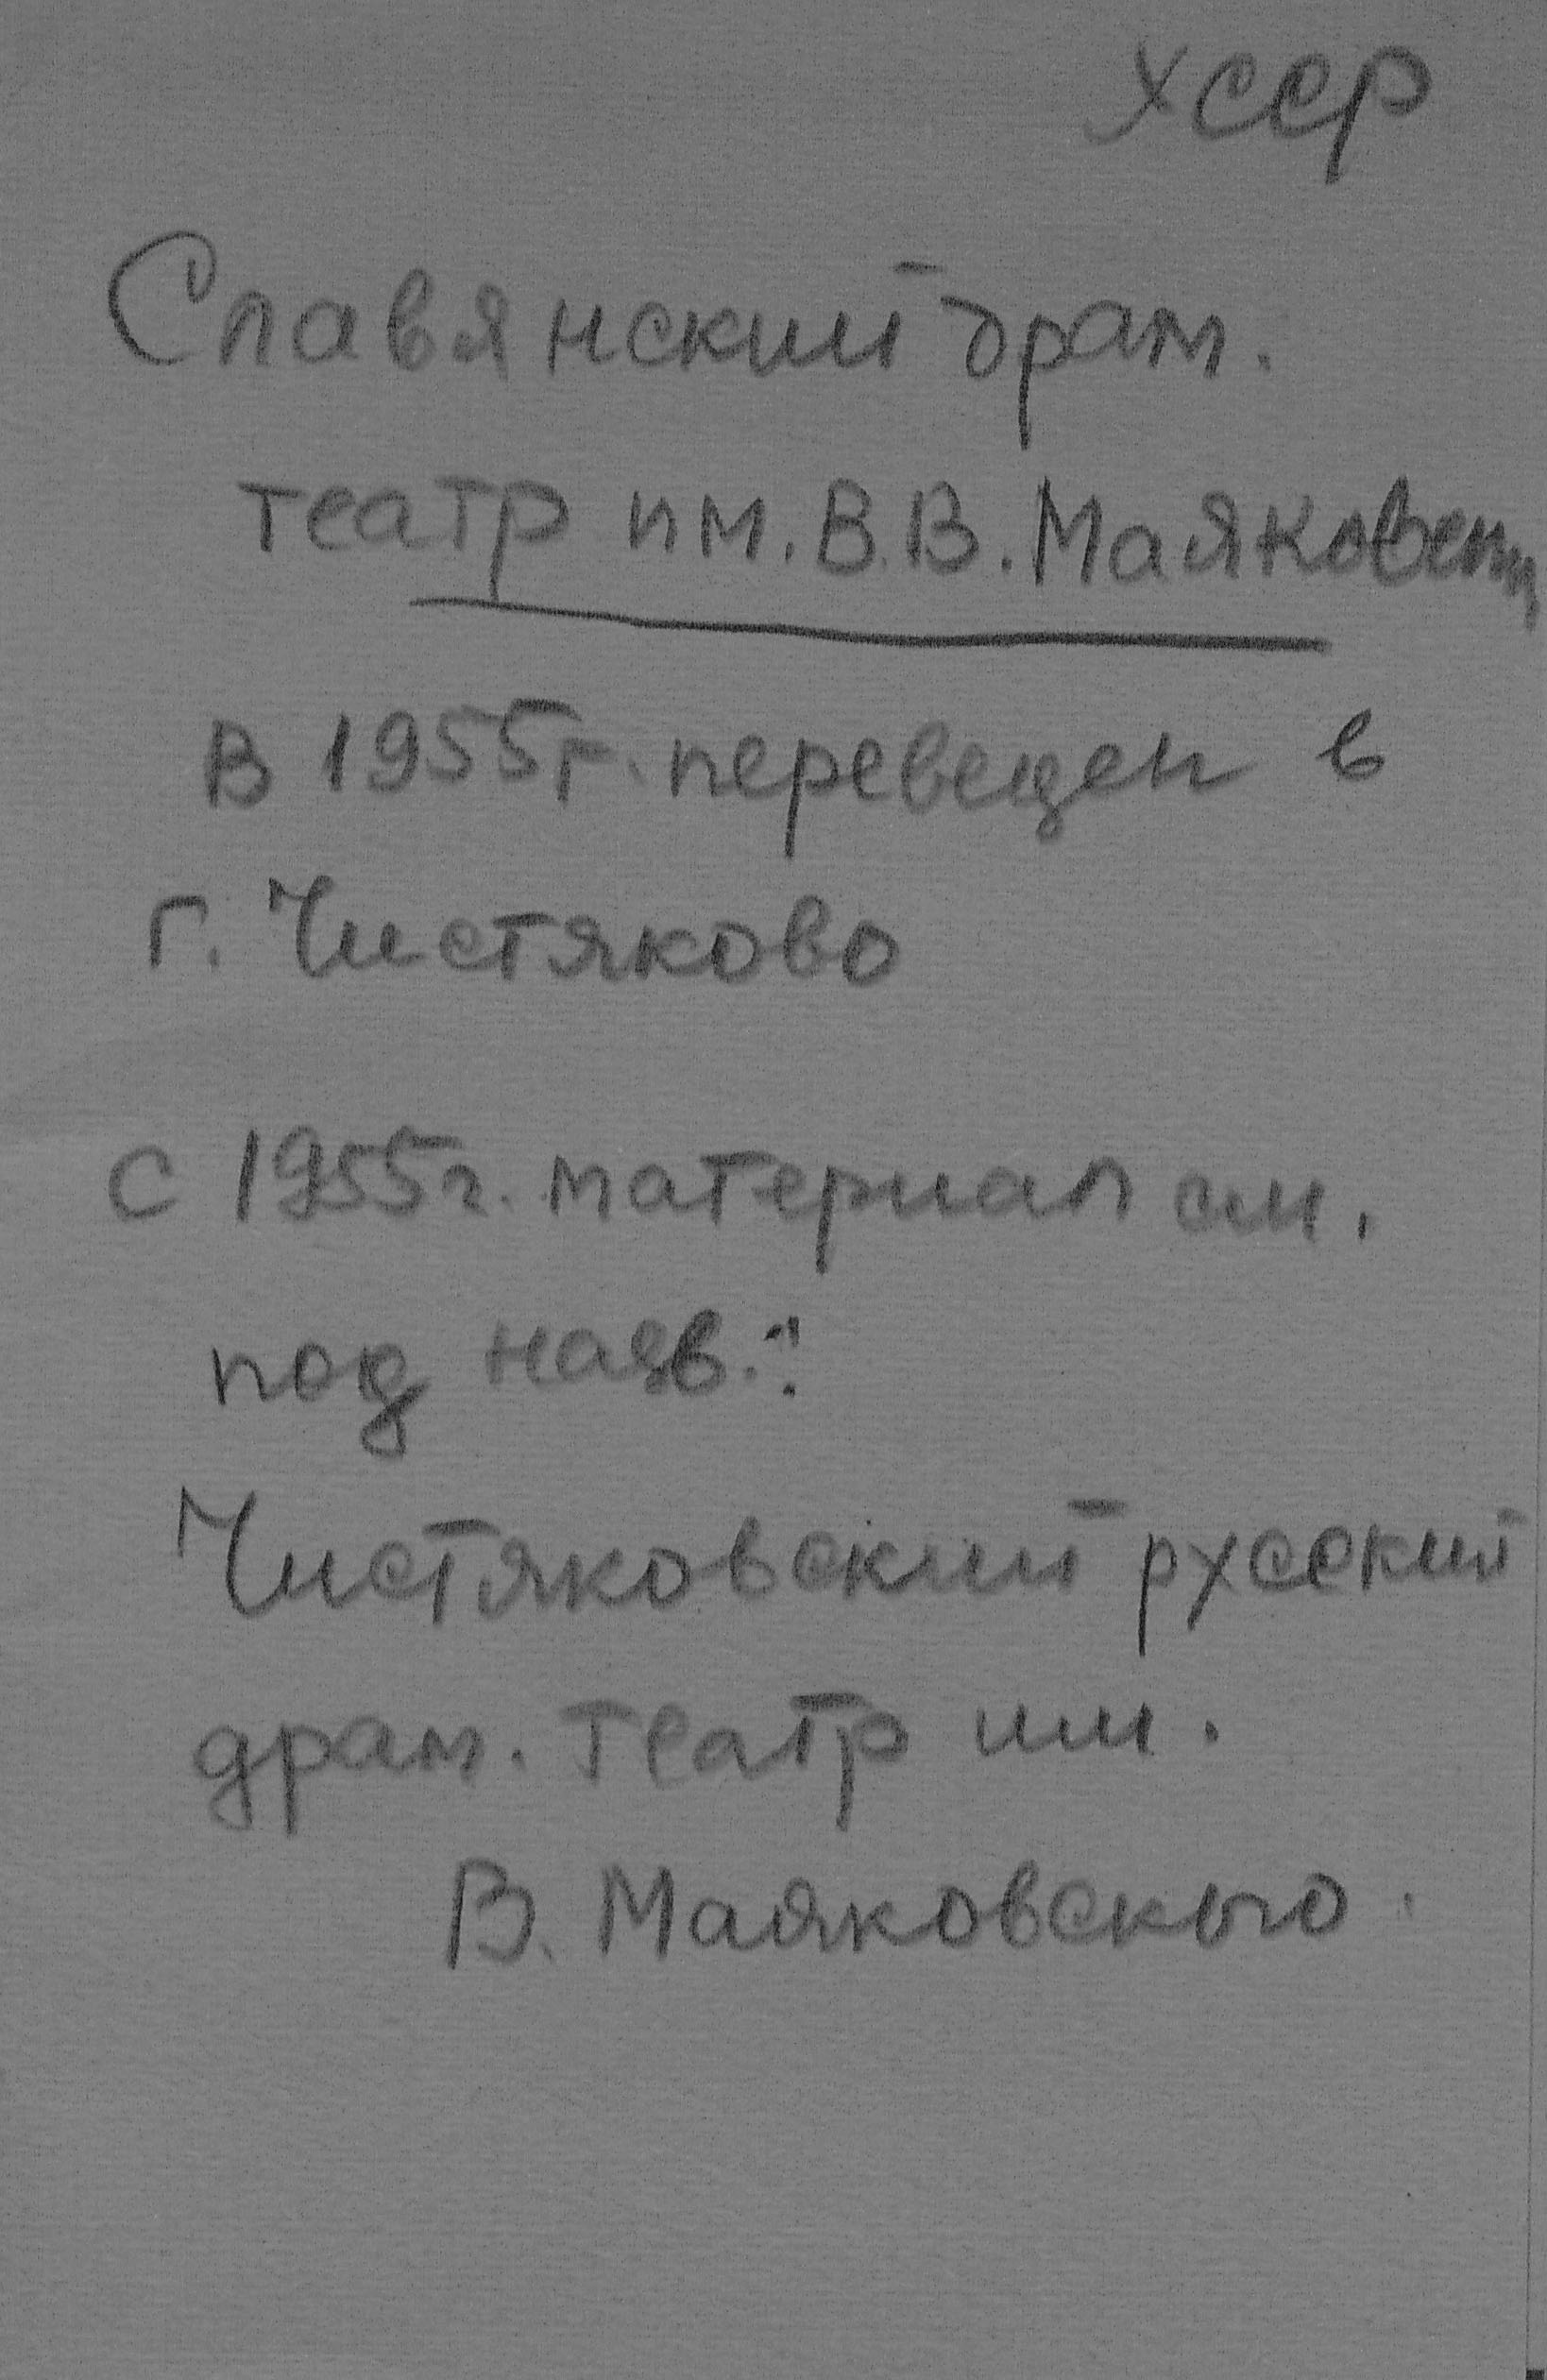 УССР
Славянский драм.
театр им. В.В. Маяковск
В 1955г. переведен в
г. Чистяково
с 1955г. материал см.
под назв.:
Чистяковский русский
драм. театр им.
В. Маяковского.